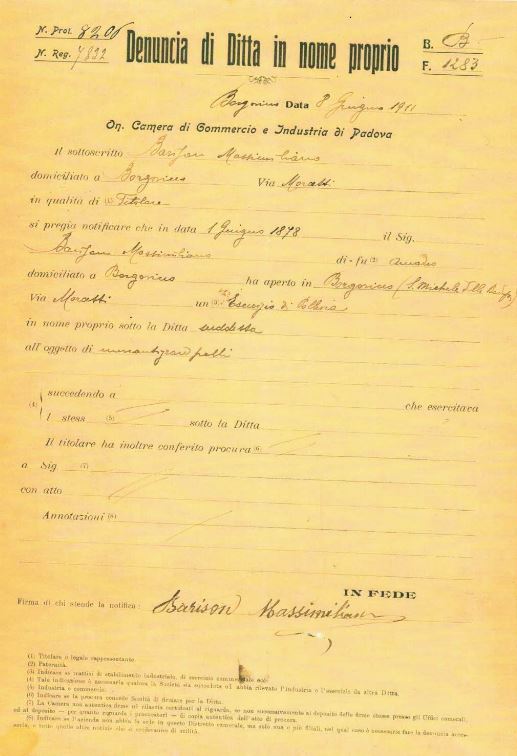 N. Prot. 8206
N. Reg. 7822
Denuncia di Ditta in nome proprio
B. B
F. 1283
Borgoricco Data 8 Giugno 1911
On. Camera di Commercio e Industria di Padova
Il sottoscritto Barison Massimiliano
domiciliato a Borgoricco Via Moratti
in qualità di (1) Titolare
si pregia notificare che in data 1 Giugno 1878 il Sig.
Barison Massimiliano di-fu (2) Amadio
domiciliato a Borgoricco ha aperto in Borgoricco (S. Michele
Via Moratti un (3) Esercizio di
in nome proprio sotto la Ditta suddetta
all'oggetto di pelli
(4) succedendo a che esercitava
l stess (5) sotto la Ditta
Il titolare ha inoltre conferito procura (6)
a Sig. (7)
con atto
Annotazioni (8)
IN FEDE
Firma di chi stende la notifica: Barison Massimiliano
(1) Titolare o legale rappresentante.
(2) Paternità.
(3) Indicare se trattisi di stabilimento industriale, di esercizio commerciale ecc.
(4) Tale indicazione è necessaria qualora la Società sia succeduta od abbia rilevato l'industria o l'esercizio da altra Ditta.
(5) Industria o commercio.
(6) Indicare se la procura concede facoltà di firmare per la Ditta.
(7) La Camera non autentica firme nè rilascia certificati al riguardo, se non successivamente al deposito delle firme stesse presso gli Uffici camerali,
ed al deposito — per quanto riguarda i procuratori — di copia autentica dell'atto di procura.
(8) Indicare se l'azienda non abbia la sede in questo Distretto camerale, ma solo una o più filiali, nel qual caso è necessario fare la denuncia
e tutte quelle altre notizie che si crederanno di utilità.